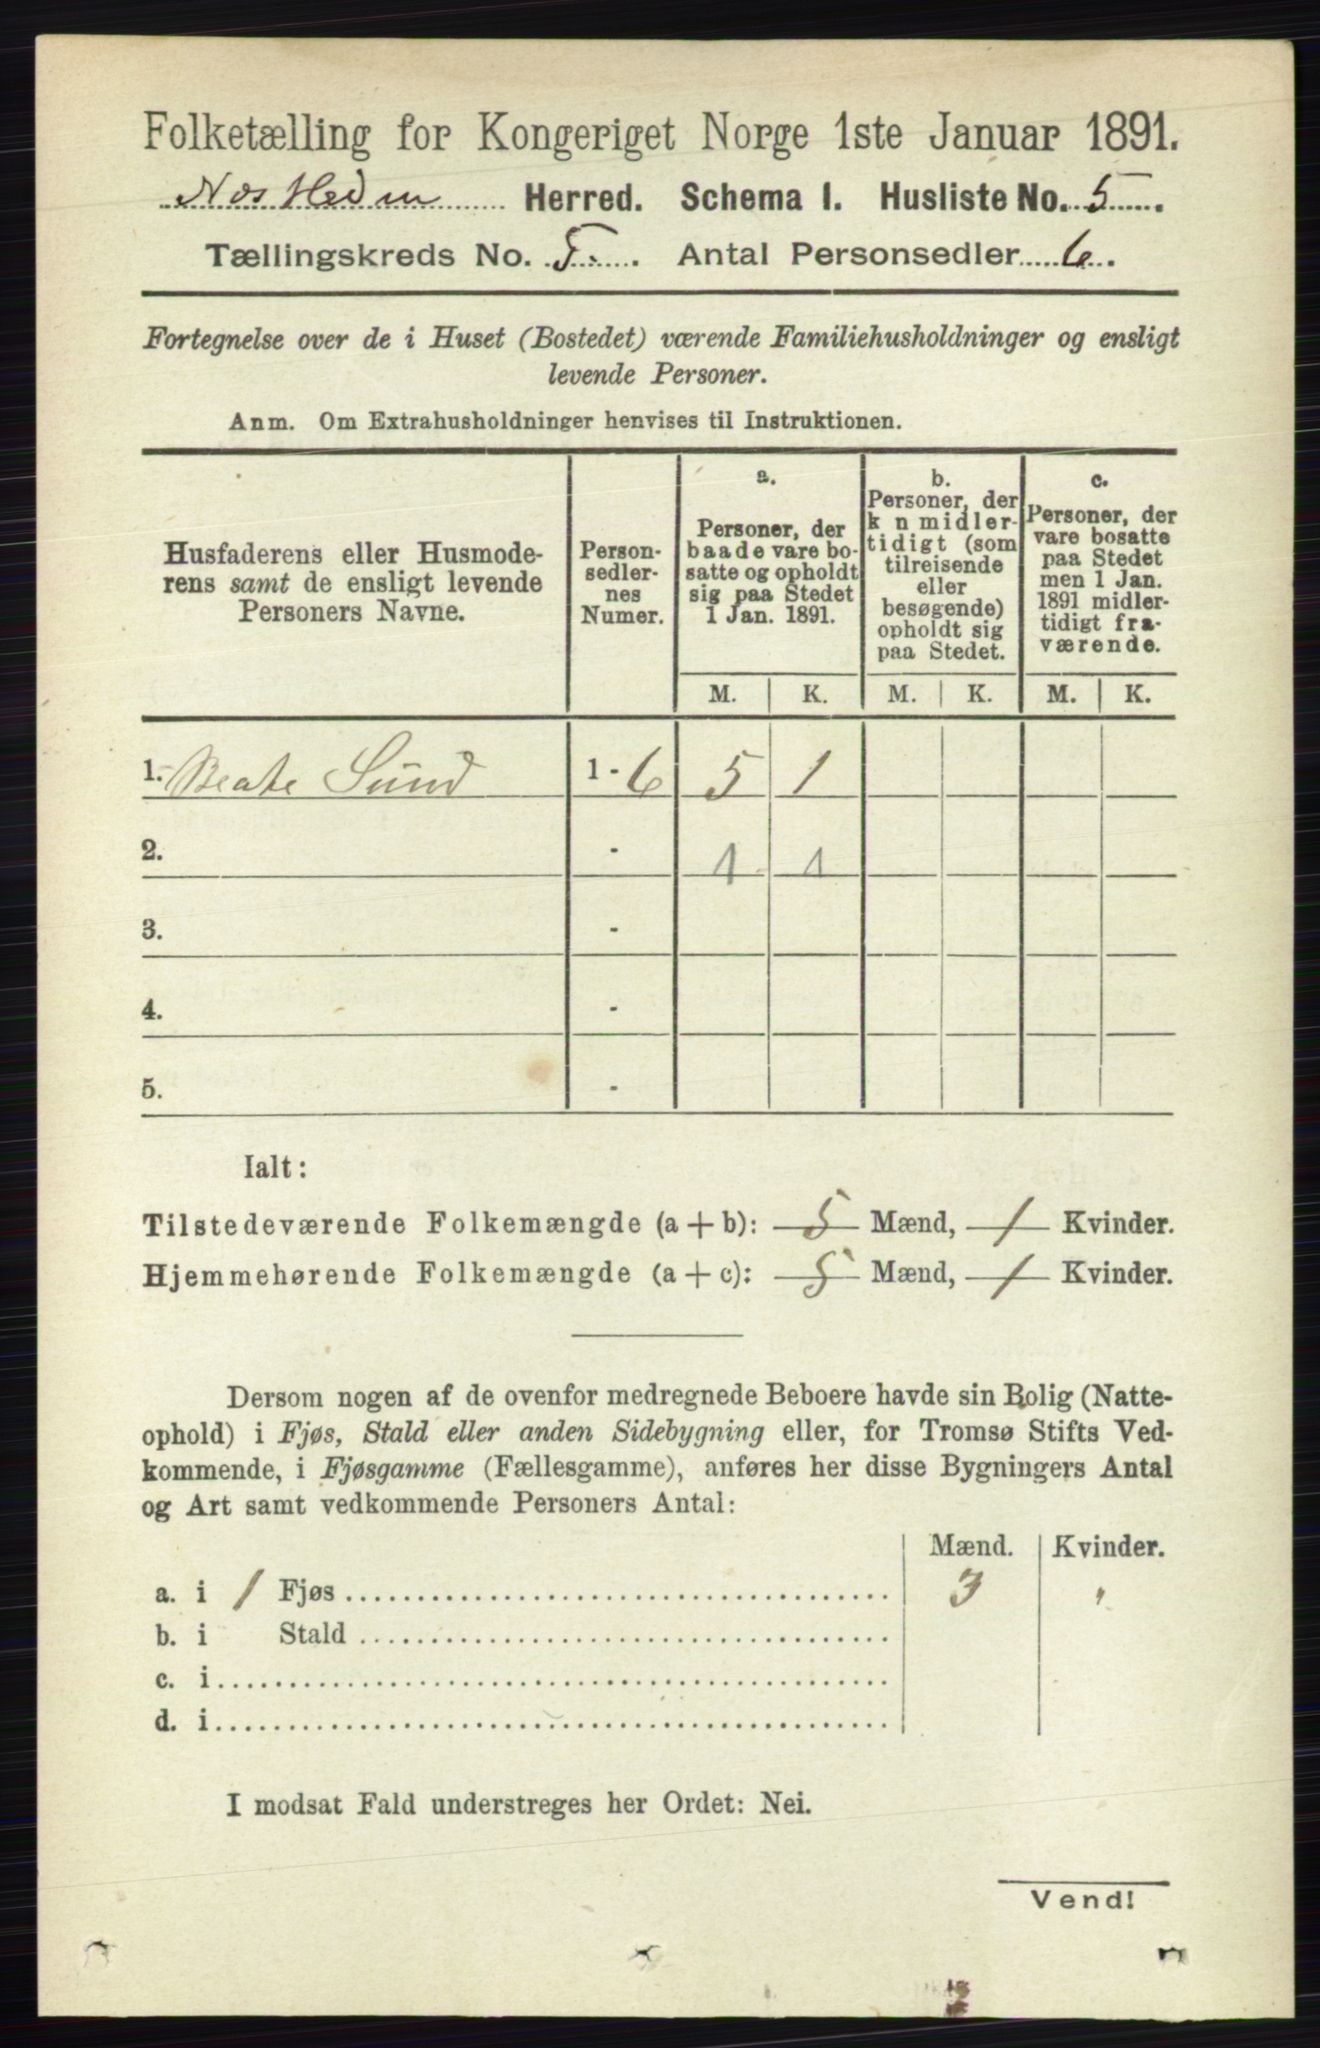 Folketælling for Kongeriget Norge 1ste Januar 1891.
Nes Hedm Herred. Schema I. Husliste No. 5.
Tællingskreds No. 5. Antal Personsedler 6.
Fortegnelse over de i Huset (Bostedet) værende Familiehusholdninger og ensligt
levende Personer.
Anm. Om Extrahusholdninger henvises til Instruktionen.
Husfaderens eller Husmode-
rens samt de ensligt levende
Personers Navne.
Person-
sedler-
nes
Numer.
a.
Personer, der
baade vare bo-
satte og opholdt
sig paa Stedet
1 Jan. 1891.
b.
Personer, der
k n midler-
tidigt (som
tilreisende
eller
besøgende)
opholdt sig
paa Stedet.
c.
Personer, der
vare bosatte
paa Stedet
men 1 Jan.
1891 midler-
tidigt fra-
værende.
M. K. M. K. M. K.
1. Beate Sund 1 - 6 5 1
2. - 1 1
3. -
4. -
5. -
Ialt:
Tilstedeværende Folkemængde (a + b): 5 Mænd, 1 Kvinder.
Hjemmehørende Folkemængde (a + c): 5 Mænd, 1 Kvinder.
Dersom nogen af de ovenfor medregnede Beboere havde sin Bolig (Natte-
ophold) i Fjøs, Stald eller anden Sidebygning eller, for Tromsø Stifts Ved-
kommende, i Fjøsgamme (Fællesgamme), anføres her disse Bygningers Antal
og Art samt vedkommende Personers Antal:
Mænd. Kvinder.
a. i 1 Fjøs 3 "
b. i Stald
c. i
d. i
I modsat Fald understreges her Ordet: Nei.
Vend!